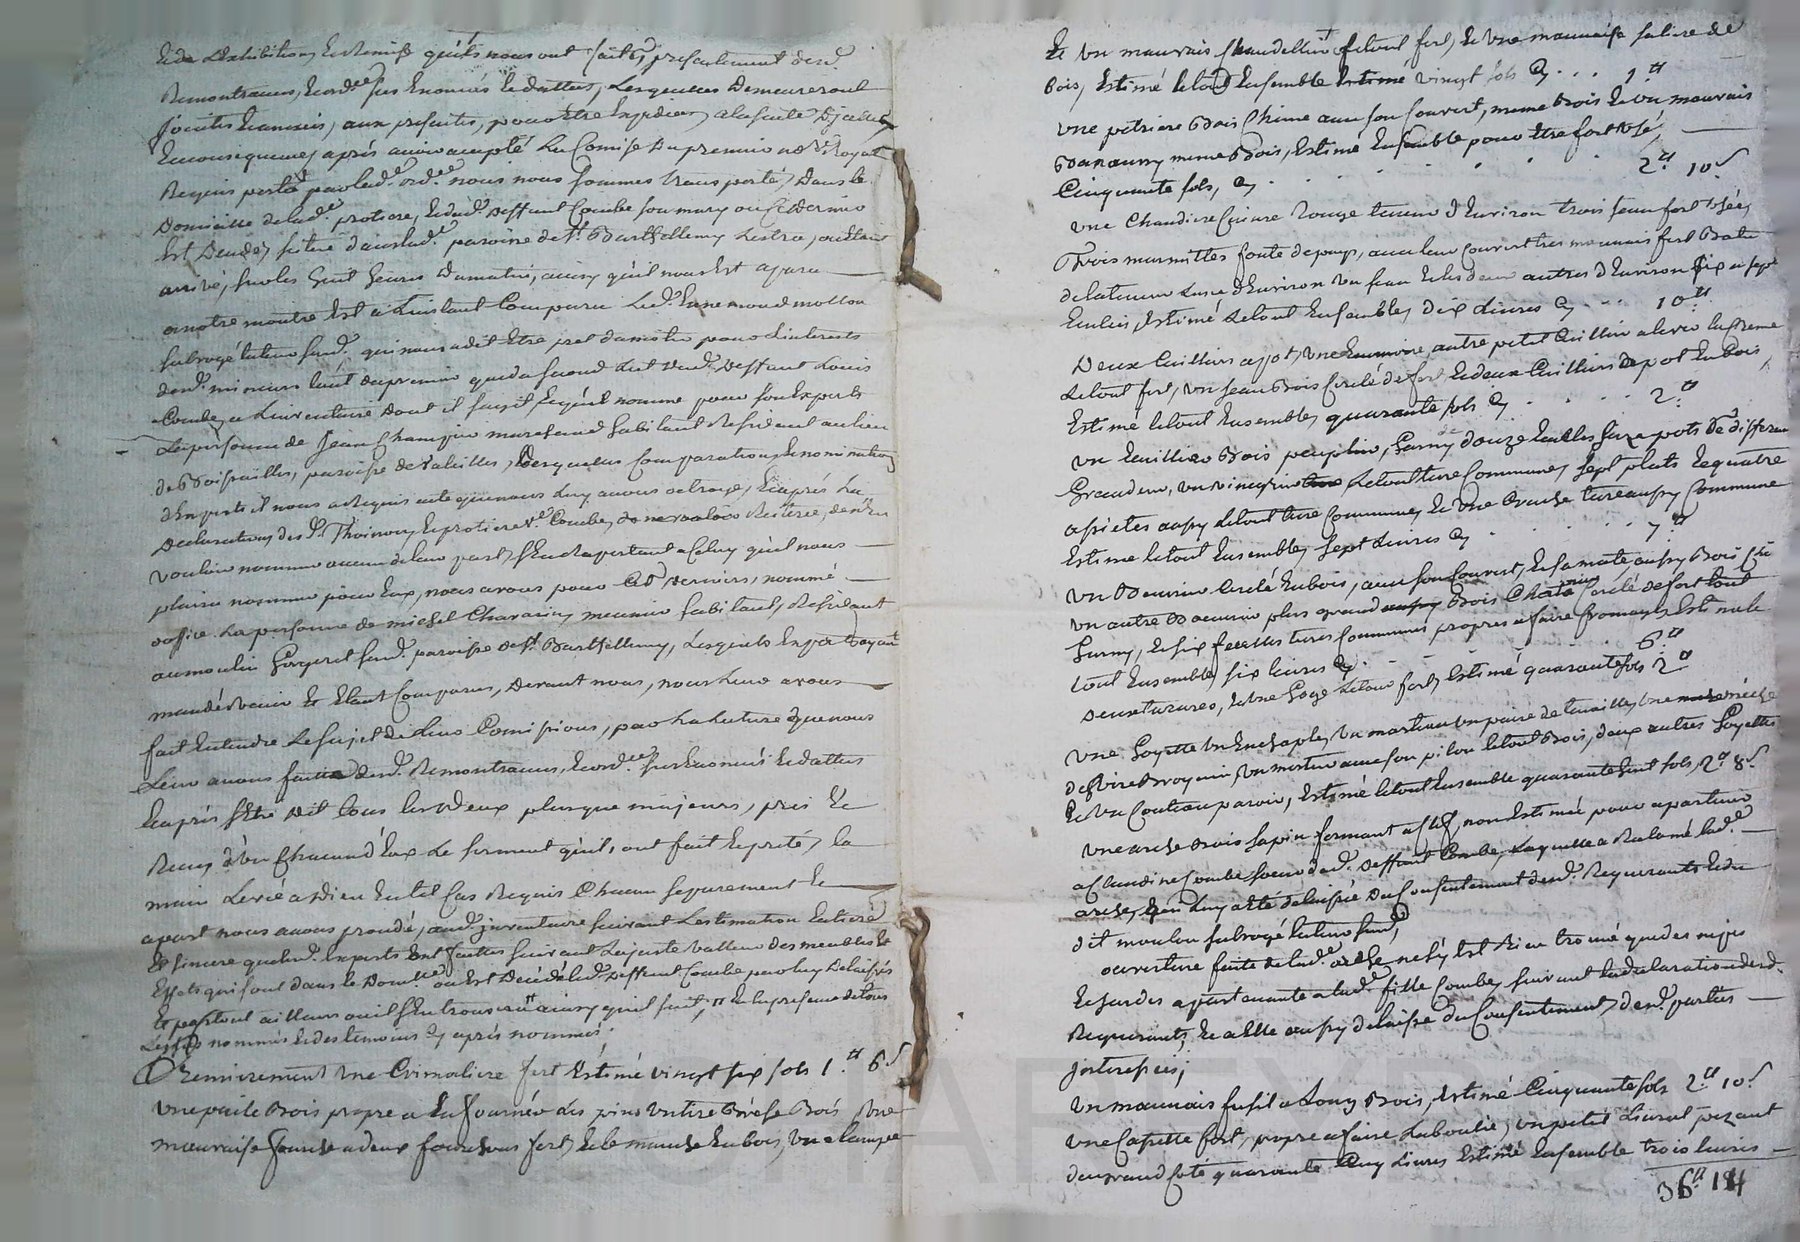 Et de Lexhibition Et Remise quils nous ont faites presentement desd.
Remontrances, Et ordce sus Enoncés Et dattes, Lesquelles Demeureront
jointes Et annexés, aux presentes, pour Etre Expediées a la suite Dicelles
En consequence, après avoir accepté La Comise Du premier
Requis portée par lad.e ordce nous nous sommes transporté, Dans le
Domicille de lad.e protiere, Et dud. deffunt Combe son mary ou Ce Dernier
Est Decedé, situé dans lad.e paroisse de St Barthellemy Lestra, ou Etant
arrivé, sur les huit heures Du matin, ainsy quil nous Est aparu
a notre montre Est a Linstant Comparu Led. moulon
subrogé tuteur susd. qui nous a dit Etre pret d'assister pour Linterests
desd. mineurs tant du premier que du second Lit dud. deffunt Louis
Combe, a Linventaire Dont il sagit, Et quil nomme pour son Experts
La personne de Jean Champin marchand habitant Resident au lieu
de Boissailles, paroisse de Valeilles, Desquelles Comparution, Et nomination
d'Experts il nous a Requis acte que nous Luy avons octroyé, Et après La
Declaration des d. Thoinon Et protiere ve Combe, de ne vouloir
vouloir nommer aucun de leur part, s'En Raportant a Celuy quil nous
plaira nommer pour Eux, nous avons pour Cet dernier, nommé
d'office La personne de michel Charavin meunier habitant, Resident
au moulin Gorgeret susd. paroisse de St Barthellemy, Lesquels Experts ayant
mandés venir Et Etant Comparus, Devant nous, nous Leur avons
fait Entendre Le sujet de Leur Comissions, par La Lecture que nous
Leur avons faitte desd. Remontrances, Et ordce sus Enoncés Et dattes
Et après s'Etre dit tous les Deux plus que majeurs, pris Et
Reçu d'un Chacun d'Eux Le serment quil, ont fait Et prété, la
main Levée a Dieu En tel Cas Requis Chacun separement Et
apart nous avons procedé, aud. inventaire suivant Lestimation Entiere
Et sincere que lesd. Experts Ont faittes suivant La juste valleur des meubles Et
Effets qui sont dans le Domlle ou Est Decedé led. Deffunt Combe par luy Delaissés
Et partout ailleurs ou il s'En trouvera ainsy quil suit, En La presence de tous
Les sus nommés Et des temoins Cy après nommés;
Premierement une Crimaliere fert Estimé vingt six sols 1.# 6s
une paile Bois propre a Enfourner Les pins Bois une
mauvaise fourche a deux fourchons fert, Et le manche En bois, une lampe
Et un mauvais Chandellier, le tout fert, Et une mauvaise saliere de
bois, Estimé le tout Ensemble Estimé vingt sols Cy . . . 1.#
une petriere Bois Chêne avec son Couvert, meme Bois Et un mauvais
Banc aussy meme Bois, Estimé Ensemble pour Etre fort usé,
Cinquante sols, Cy . . . . . . . . 2# 10s
une Chaudiere Cuivre Rouge teneur d'Environ trois seaux fort usée,
Trois marmittes fonte de pays, avec leur Couvert tres mauvais fort
de la teneur Lune d'Environ un seau Et les deux autres d'Environ six a sept
Ecuelles, Estimé Le tout Ensemble, dix Livres Cy . . . 10#
Deux Cuilliers a pot, une Ecumoire, autre petit Cuillier a lever la Creme
Le tout fert, un seau Bois serclé de fert Et deux Cuilliers de pot En bois,
Estimé Le tout Ensemble, quarante sols Cy . . . . . 2#
un Cuillier Bois peuplier, Garny de douze Ecuelles Six pots de differentes
Grandeur, un vinegrier Le tout terre Commune, sept plats Et quatre
assiettes aussy Le tout terre Commune, Et une Cruche terre aussy Commune
Estimé le tout Ensemble, sept Livres Cy . . . . . 7#
un Beurrier Cerclé En bois, avec son Couvert, Et sa mate aussy Bois
un autre Beurrier plus grand aussy Bois Chêne serclé de fert tout
Garny, Et six fecelles terre Commune propres a faire fromages, Estimé le
tout Ensemble, six livres Cy . . . . . 6#
Deux tarares, Et une Goge Le tout fert, Estimé quarante sols 2#
une Goyette un Enchaple, un marteau un paire de tenailles, une
de un mortier avec son pilon le tout Bois, deux autres Goyettes
Et un Couteau paroir, Estimé le tout Ensemble quarante huit sols, 2# 8s
une arche Bois sapin fermant a Clef, non Estimée pour apartenir
a Claudine Combe soeur dud. deffunt Combe, Laquelle a Reclamé lad.e
arche, Et qui Luy a Eté delaissée du Consentement desd. Requerants Et du
dit moulon subrogé tuteur susd,
ouverture faite de lad.e arche ne s'y Est Rien trouvé que des nipes
Et hardes apartenante a lad.e fille Combe, suivant La declaration desd.
Requerants, Et a Elle aussy delaissé du Consentement, desd. parties
jnteressées;
un mauvais fusil a Long Bois, Estimé Cinquante sols 2# 10s
une Cassette fert, propre a faire La boulie, un petit Livral pezant
du grand Coté quarante Cinq Livres Estimé Ensemble trois livres
36# 14